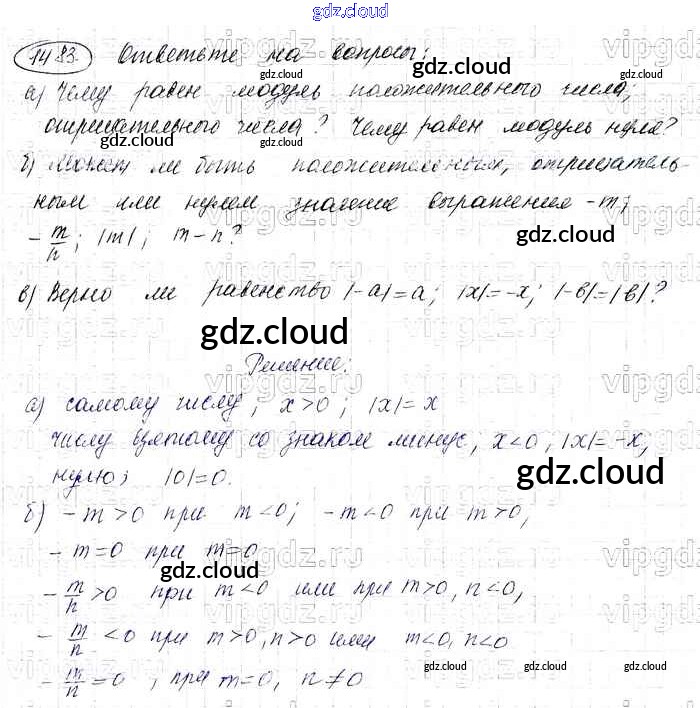 gdz.cloud
1483. Ответьте на вопросы:
а) Чему равен модуль положительного числа;
отрицательного числа? Чему равен модуль нуля?
б) Может ли быть положительным, отрицатель-
ным или нулем значение выражения -m;
-m/n; |m|; m-n?
в) Верно ли равенство |-a|=a; |x|=-x; |-b|=|b|?
Решение:
а) самому числу, x>0; |x|=x
числу взятому со знаком минус, x<0, |x|=-x,
нулю; |0|=0.
б) -m>0 при m<0; -m<0 при m>0,
-m=0 при m=0
-m/n>0 при m<0 или при m>0, n<0,
-m/n<0 при m>0, n>0 или m<0, n<0
-m/n=0, при m=0, n≠0
gdz.cloud
vipgdz.ru